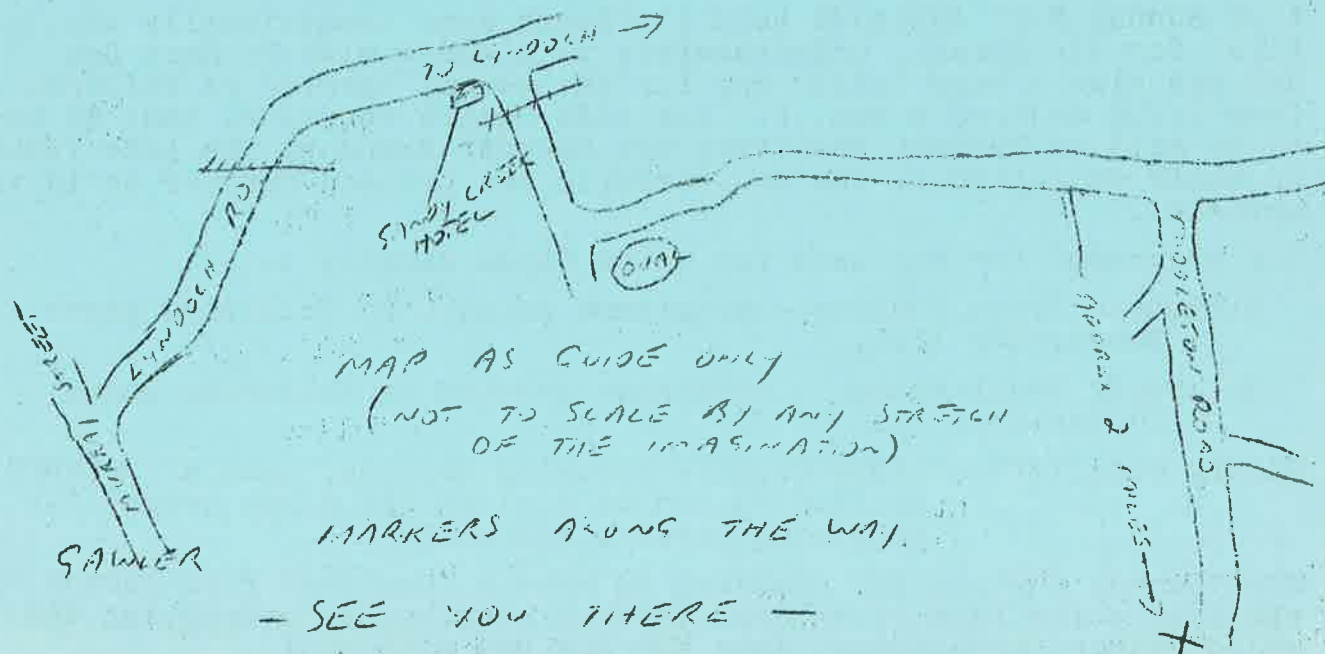 TO LYNDOCH
SANDY CREEK
HOTEL
LYNDOCH RD
OVAL
MURRAY
STREET
GAWLER
MIDDLETON ROAD
APPROX 2 MILES
MAP AS GUIDE ONLY
(NOT TO SCALE BY ANY STRETCH
OF THE IMAGINATION)
MARKERS ALONG THE WAY.
- SEE YOU THERE -